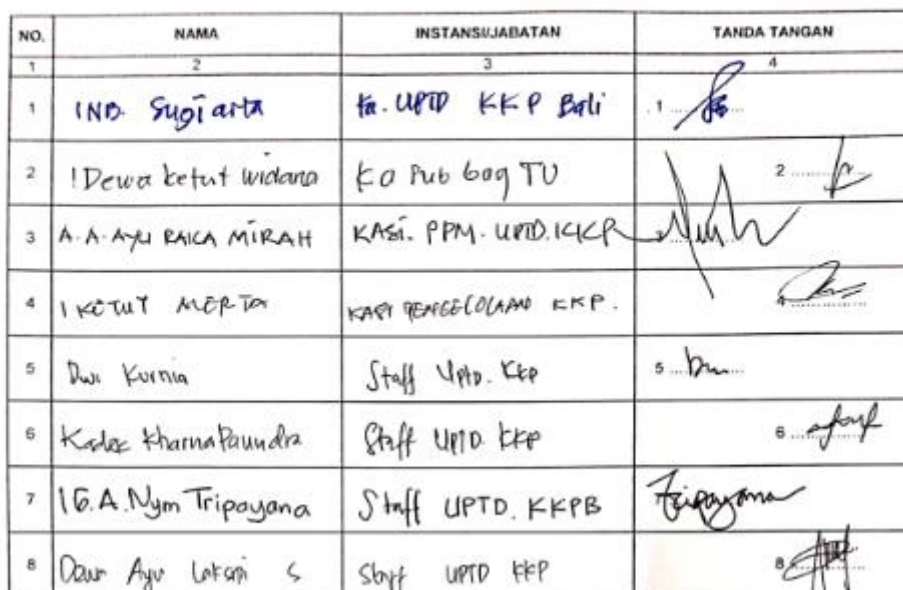 NO. NAMA INSTANSI/JABATAN TANDA TANGAN
1 2 3 4
1 INB. Sugiarta Ka. UPTD KKP Bali 1
2 I Dewa Ketut Widana Ka Sub bag TU 2
3 A.A. AYU RAKA MIRAH KASI. PPM. UPTD. KKP 3
4 I KETUT MERTA KASI PENGELOLAAN KKP. 4
5 Dwi Kurnia Staff UPTD. KKP 5
6 Kadek Kharna Paundra Staff UPTD KKP 6
7 I G.A. Nym Tripayana Staff UPTD. KKPB Tripayana
8 Ayu S Staff UPTD KKP 8